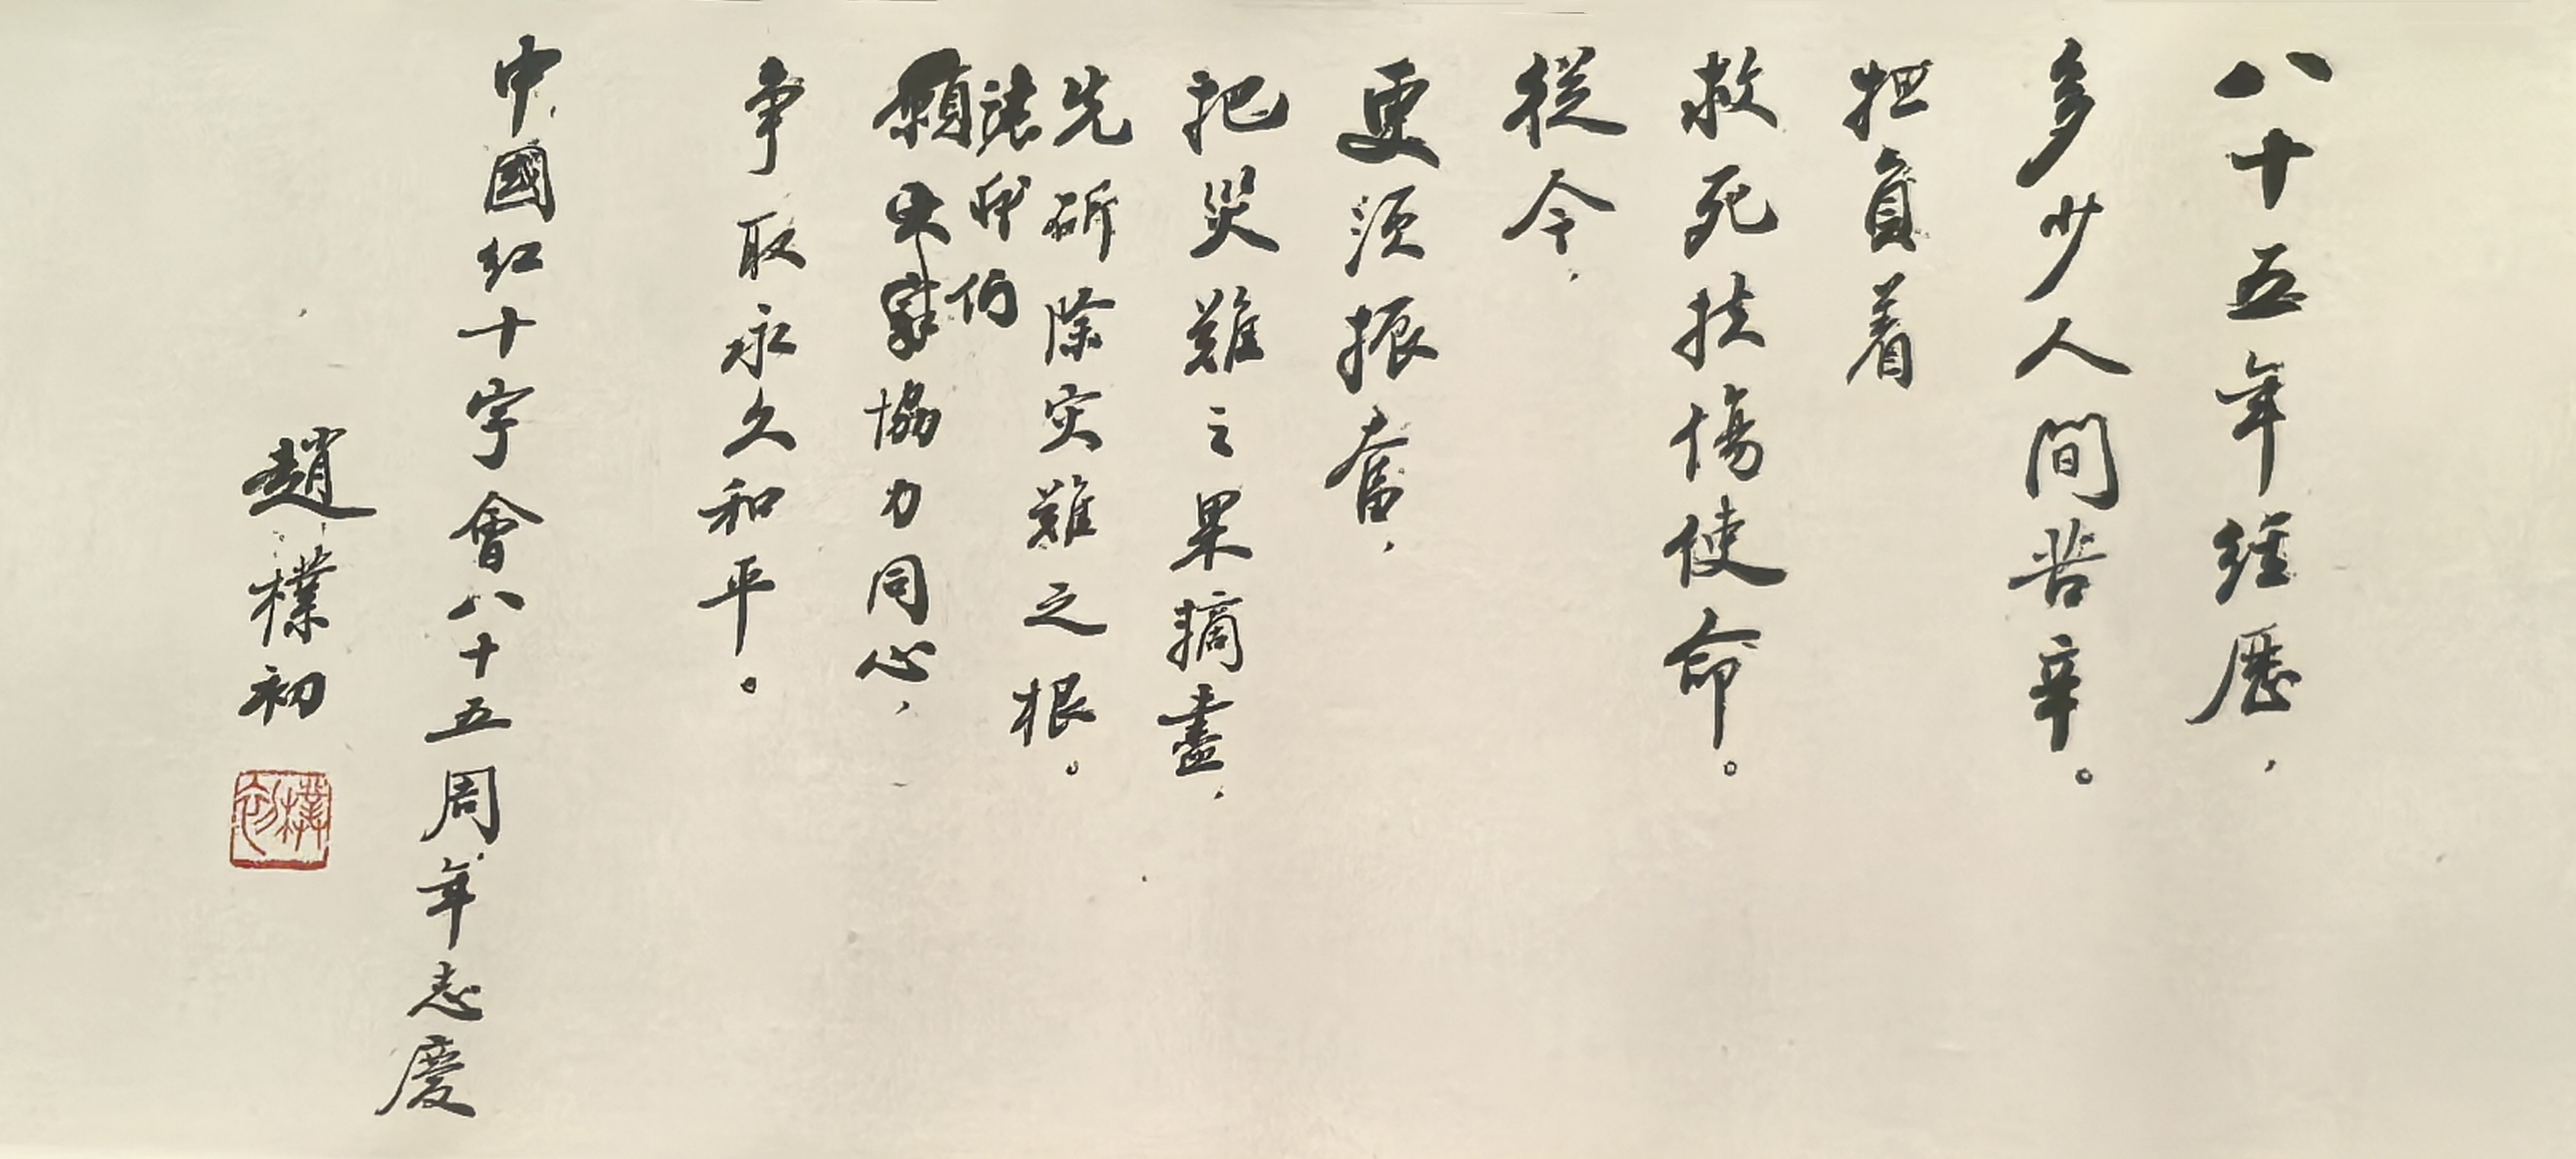 八十五年經歷，
多少人間苦辛。
担負着
救死扶傷使命。
從今，
更須振奮，
把災難之果摘盡，
先斫除灾難之根。
讓我们
願大家協力同心，
争取永久和平。
中國紅十字會八十五周年志慶
趙樸初
樸初